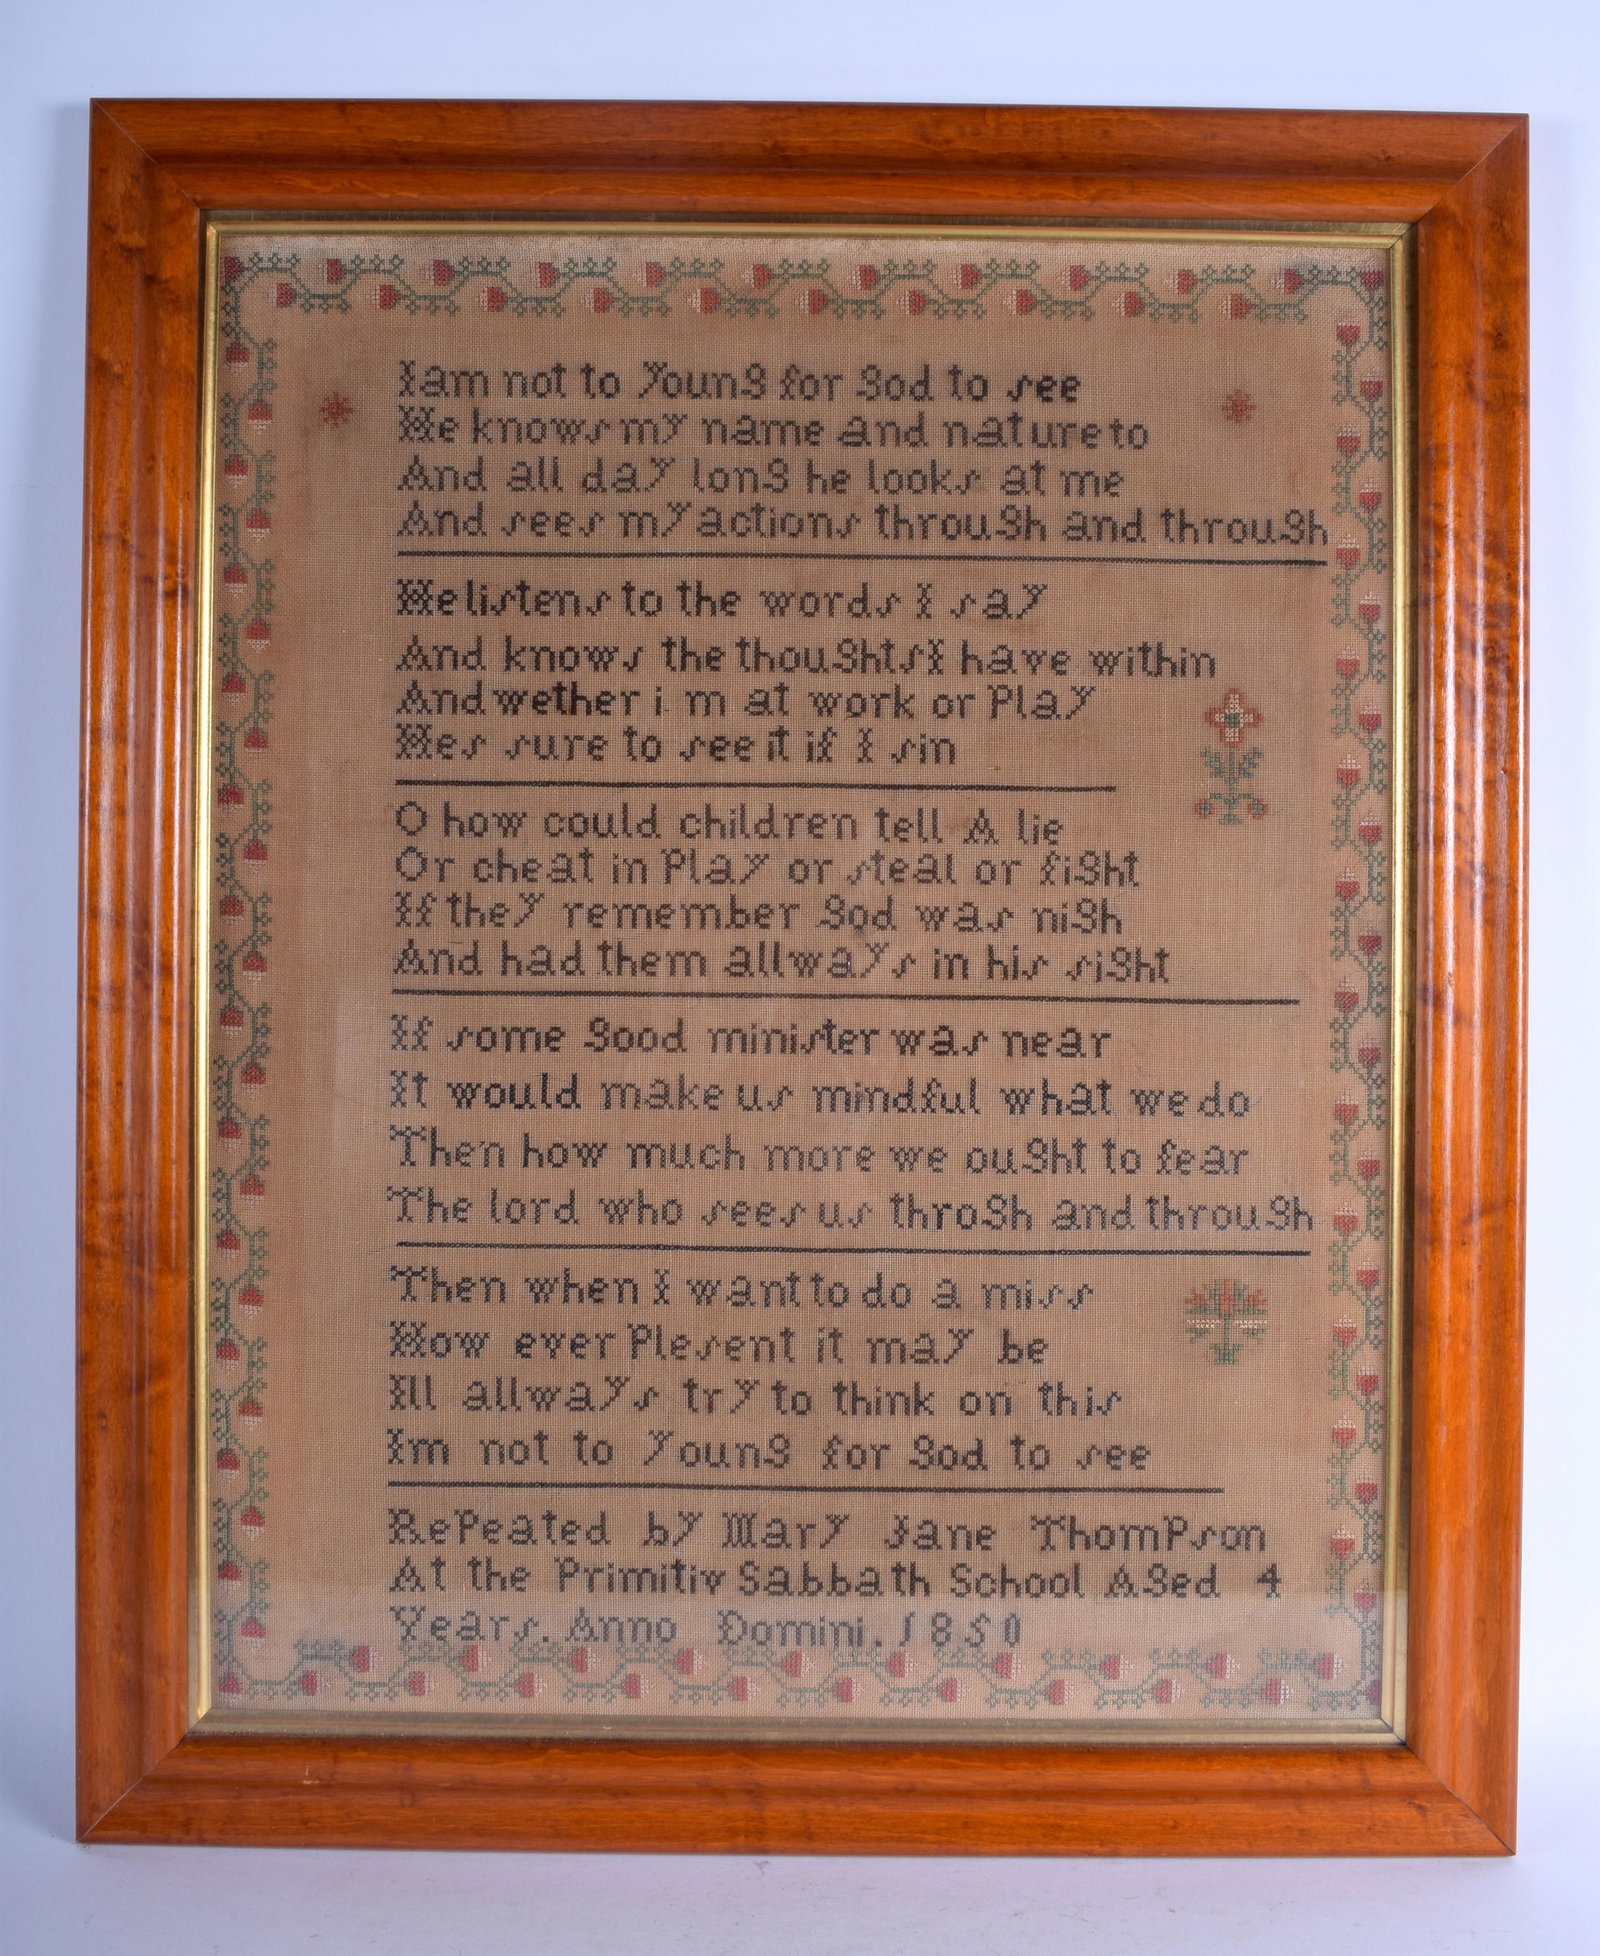 I am not to young for God to see
He knows my name and nature to
And all day long he looks at me
And sees my actions through and through
He listens to the words I say
And knows the thoughts I have within
And wether i m at work or Play
Hes sure to see it if I sin
O how could children tell A lie
Or cheat in Play or steal or fight
If they remember God was nigh
And had them allways in his sight
If some good minister was near
It would make us mindful what we do
Then how much more we ought to fear
The lord who sees us throgh and through
Then when I want to do a miss
How ever Plesent it may be
Ill allways try to think on this
Im not to young for God to see
RePeated by Mary Jane ThomPson
At the Primitiv Sabbath School Aged 4
Years. Anno Domini. 1850